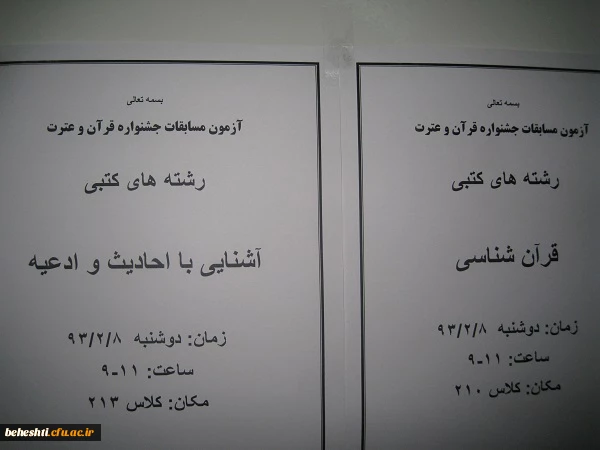 بسمه تعالی
آزمون مسابقات جشنواره قرآن و عترت
رشته های کتبی
قرآن شناسی
زمان: دوشنبه ۹۳/۲/۸
ساعت: ۱۱-۹
مکان: کلاس ۲۱۰
بسمه تعالی
آزمون مسابقات جشنواره قرآن و عترت
رشته های کتبی
آشنایی با احادیث و ادعیه
زمان: دوشنبه ۹۳/۲/۸
ساعت: ۱۱-۹
مکان: کلاس ۲۱۳
beheshti.cfu.ac.ir